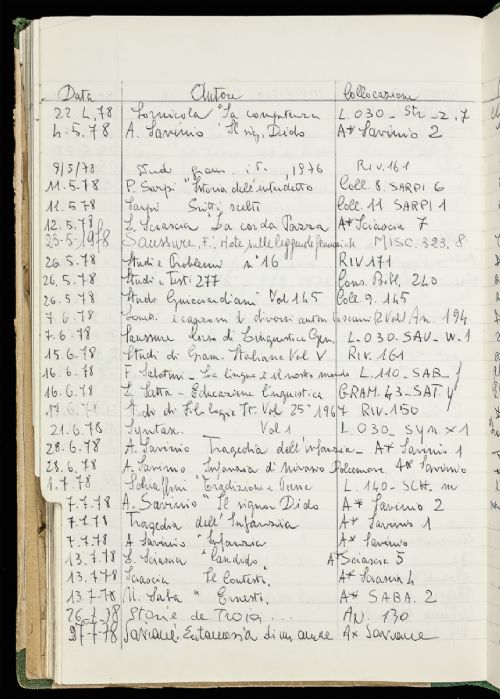 Data Autore Collocazione
22.4.78 Sornicola "La competenza L.030_Str_2.7
4.5.78 A. Savinio "Il sig. Dido A* Savinio 2
9/5/78 Studi gram. it., 1976 RIV.161
11.5.78 P. Sarpi "Istoria dell'interdetto Coll. 8. SARPI 6
11.5.78 Sarpi Scritti scelti Coll. 11 SARPI 1
12.5.78 L. Sciascia "La corda Pazza A* Sciascia 7
23-5-1978 Saussure, F., Note sulle leggende germaniche MISC. 323. 8
26.5.78 Studi e Problemi n° 16 RIV 171
26.5.78 Studi e Testi 277 Cons. Bibl. 240
26.5.78 Studi Guicciardiani Vol 145 Coll. 9. 145
7.6.78 i capricci di diversi autori toscani 2 Vol. An. 194
7.6.78 Saussure Corso di Linguistica Gen. L.030_SAU_W.1
15.6.78 Studi di Gram. Italiana Vol V RIV. 161
16.6.78 F. Sabatini _ La lingua e il nostro mondo L.110_SAB_
16.6.78 L. Satta _ Educazione linguistica GRAM. 43_SAT.4
17.6.78 St. di Filologia It. Vol 25° 1967 RIV. 150
21.6.78 Syntax. Vol 1 L.030_Syn x1
28.6.78 A. Savinio Tragedia dell'infanzia _ A* Savinio 1
28.6.78 A. Savinio Infanzia di Nivasio Dolcemare A* Savinio
1.7.78 Schiaffini "Tradizione e Poesia L.140_SCH. m
7.7.78 A. Savinio "Il signor Dido A* Savinio 2
7.7.78 Tragedia dell'Infanzia A* Savinio 1
7.7.78 A Savinio "Infanzia A* Savinio
13.7.78 L. Sciascia "Candido. A* Sciascia 5
13.7.78 Sciascia Il Contesto. A* Sciascia 4
13.7.78 U. Saba " Ernesto. A* SABA. 2
26.7.78 Storie de Troia ... AN. 130
27-7-78 Saviane. Eutanasia di un amore A* Saviane